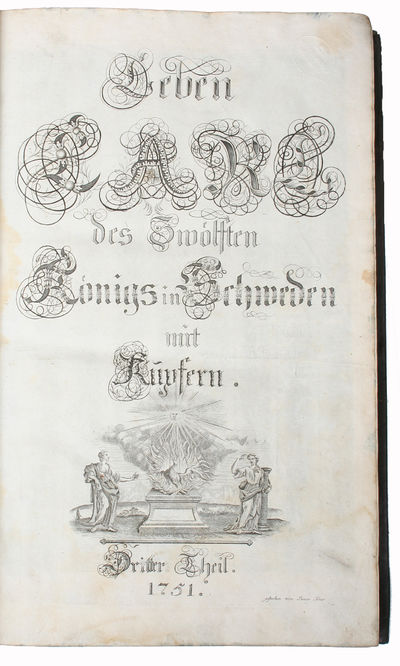 Leben
CARL
des Zwölften
Königs in Schweden
mit
Kupfern.
Dritter Theil.
1751.
gestochen von